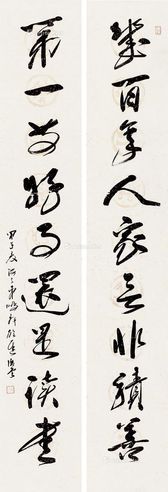 幾百年人家無非積善
第一等好事還是讀書